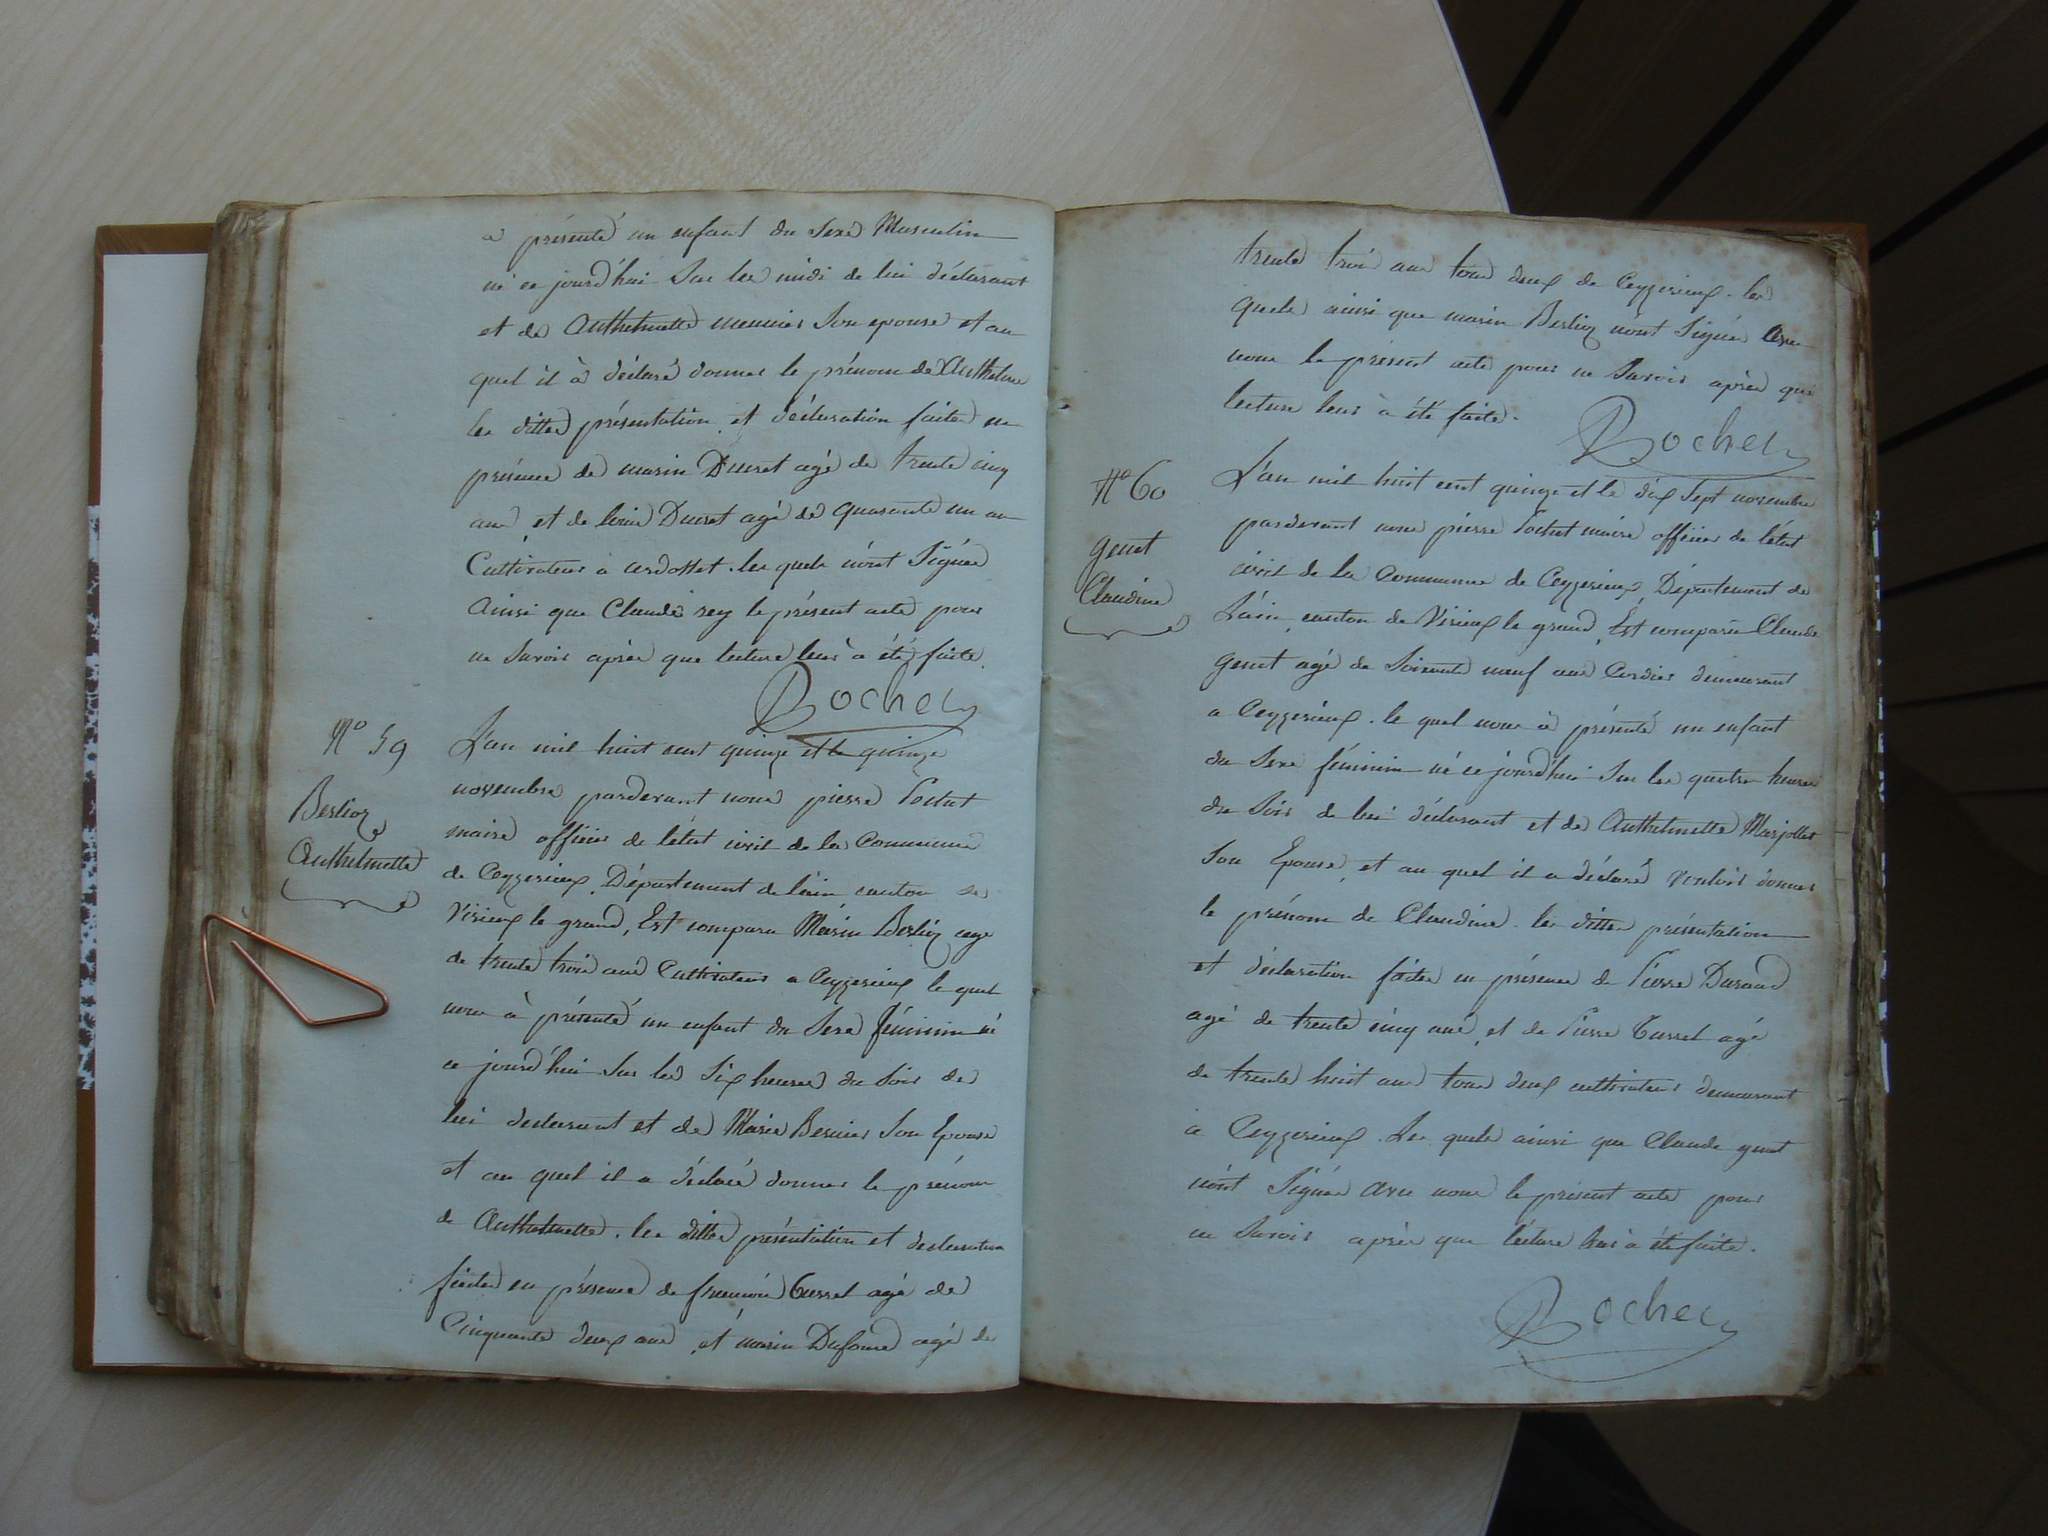 a présenté un enfant du Sexe Masculin
né ce jourd'hui Sur les midi de lui déclarant
et de Anthelmette meunier Son epouse et au
quel il à déclaré donner le prénom de Anthelme
les dittes présentation et déclaration faites en
présence de marin Ducret agé de trente cinq
ans, et de louis Ducret agé de quarante un an
Cultivateurs à les quels n'ont Signés
Ainsi que Claude rey le présent acte pour
ne Savoir après que lecture leur à été faite.
Rochex
N° 59
Berlioz
Anthelmette
L'an mil huit cent quinze et le quinze
novembre pardevant nous pierre
maire officier de l'état civil de la Commune
de Ceyzerieux, Département de l'ain canton de
Virieux le grand, Est comparu Marin Berlioz agé
de trente trois ans Cultivateur a Ceyzerieux le quel
nous à présenté un enfant du Sexe féminin né
ce jourd'hui Sur les Six heures du Soir de
lui declarant et de Marie Bernier Son Epouse
et au quel il a déclaré donner le prénom
de Anthelmette. les dittes présentation et declaration
faites en présence de françois Curret agé de
Cinquante deux ans, et marin Dufour agé de
trente trois ans tous deux de Ceyzerieux. les
quels ainsi que marin Berlioz n'ont Signés Avec
nous le présent acte pour ne Savoir après que
lecture leur à été faite.
Rochex
N° 60
genet
Claudine
L'an mil huit cent quinze et le dix Sept novembre
pardevant nous pierre maire officier de l'état
civil de la Commune de Ceyzerieux, Département de
L'ain, canton de Virieux le grand, Est comparu Claude
genet agé de Soixante neuf ans Cordier demeurant
a Ceyzerieux. le quel nous à présenté un enfant
du Sexe féminin né ce jourd'hui Sur les quatre heures
du Soir de lui déclarant et de Anthelmette Marjollet
Son Epouse, et au quel il a déclaré vouloir donner
le prénom de Claudine. les dittes présentation
et déclaration faites en présence de Pierre Durand
agé de trente cinq ans, et de Pierre Curret agé
de trente huit ans tous deux cultivateurs demeurant
a Ceyzerieux. Les quels ainsi que Claude genet
n'ont Signés Avec nous le présent acte pour
ne Savoir après que lécture leur à été faite.
Rochex